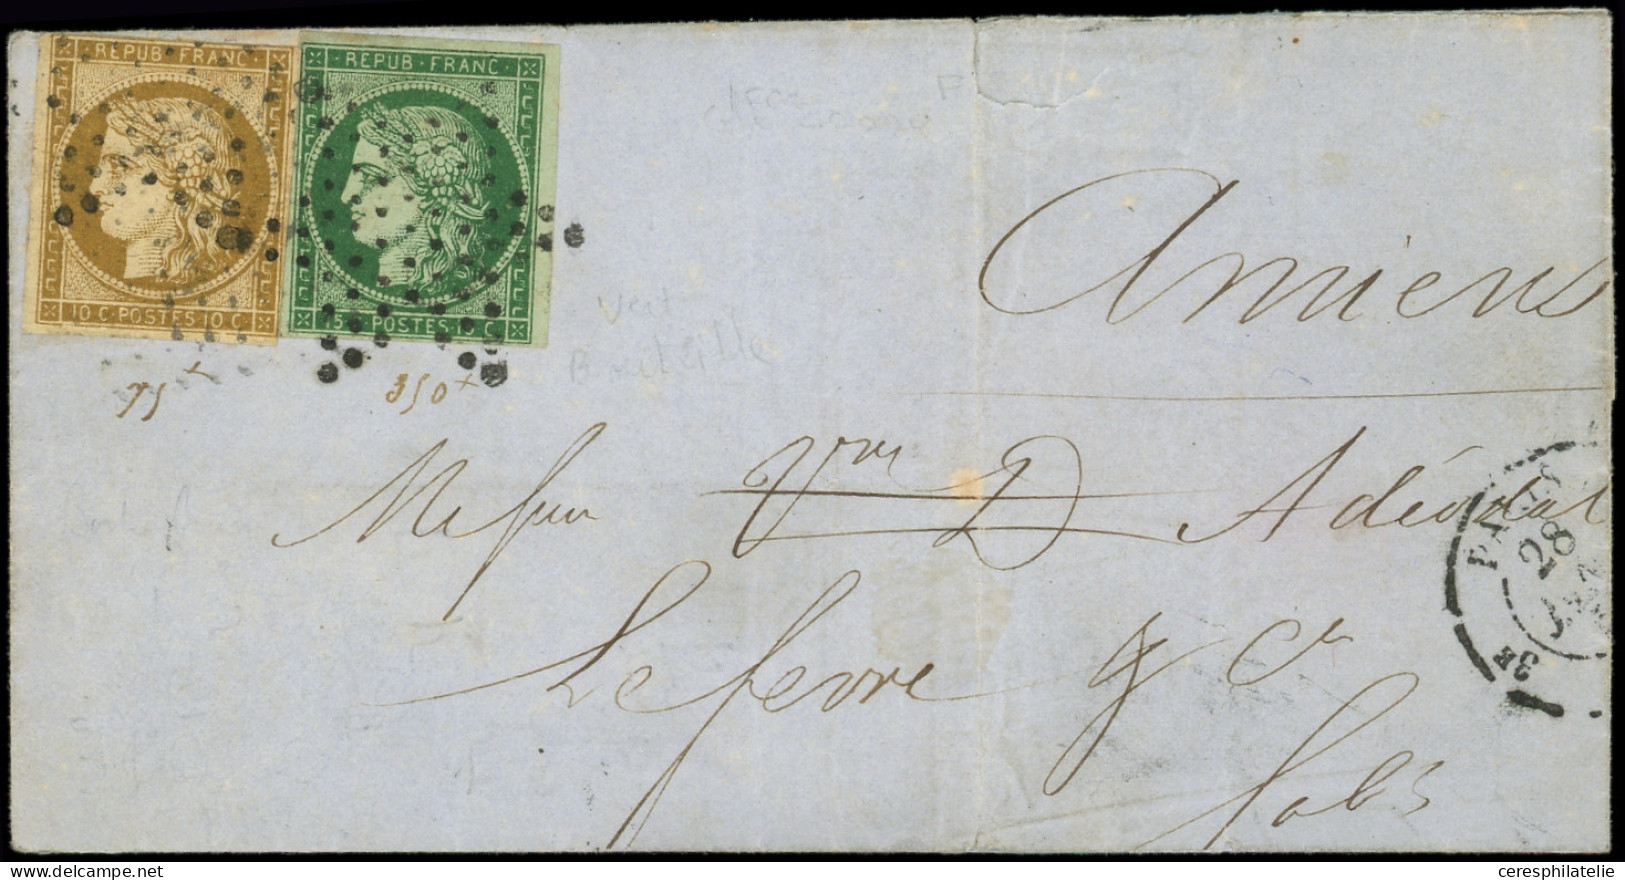 REPUB · FRANC ·
10 C · POSTES 10 C ·
REPUB · FRANC ·
15 C · POSTES 15 C
Amiens
75 x
350 x
Vert
Bouteille
Messieurs Vve D Adéodat
Lefevre & Cie
fabts
PARIS
28
3E
ceresphilatelie